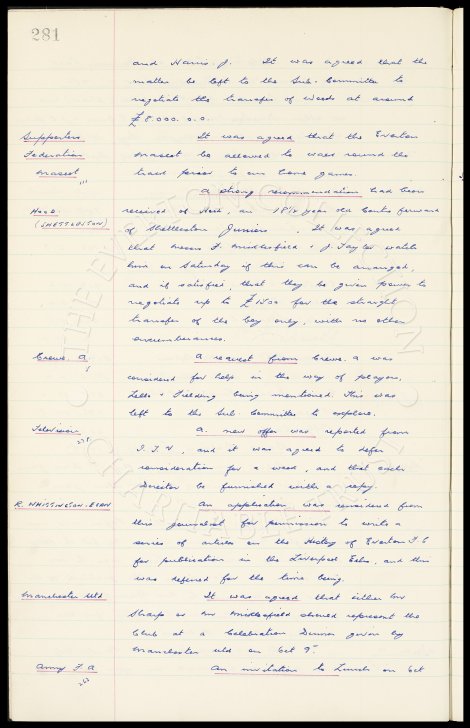 281
and Harris. J. It was agreed that the
matter be left to the Sub-Committee to
negotiate the transfer of Woods at around
£8.000.0.0.
Supporters It was agreed that the Everton
Federation mascot be allowed to walk round the
Mascot track prior to our home games.
A strong recommendation had been
Hood received of Hood, an 18½ year old Centre forward
(SHETTLESTON) of Shettleston Juniors. It was agreed
that Messrs F. Micklesfield & J Taylor watch
him on Saturday if this can be arranged,
and if satisfied, that they be given power to
negotiate up to for the straight
transfer of the boy only, with no other
encumbrances.
Crewe. A A request from Crewe. A was
considered for help in the way of players,
& Fielding being mentioned. This was
left to the Sub Committee to explore.
Television A new offer was reported from
I.T.V, and it was agreed to defer
consideration for a week, and that each
Director be furnished with a copy.
R. WHITTINGTON-EGAN An application was considered from
this journalist for permission to write a
series of articles on the History of Everton F.C
for publication in the Liverpool Echo, and this
was deferred for the time being.
Manchester Utd It was agreed that either Mr
Sharp or Mr Micklesfield should represent the
Club at a Celebration Dinner given by
Manchester Utd on Oct 9
Army F.A An invitation to Lunch on Oct
THE EVERTON COLLECTION
CHARITABLE TRUST